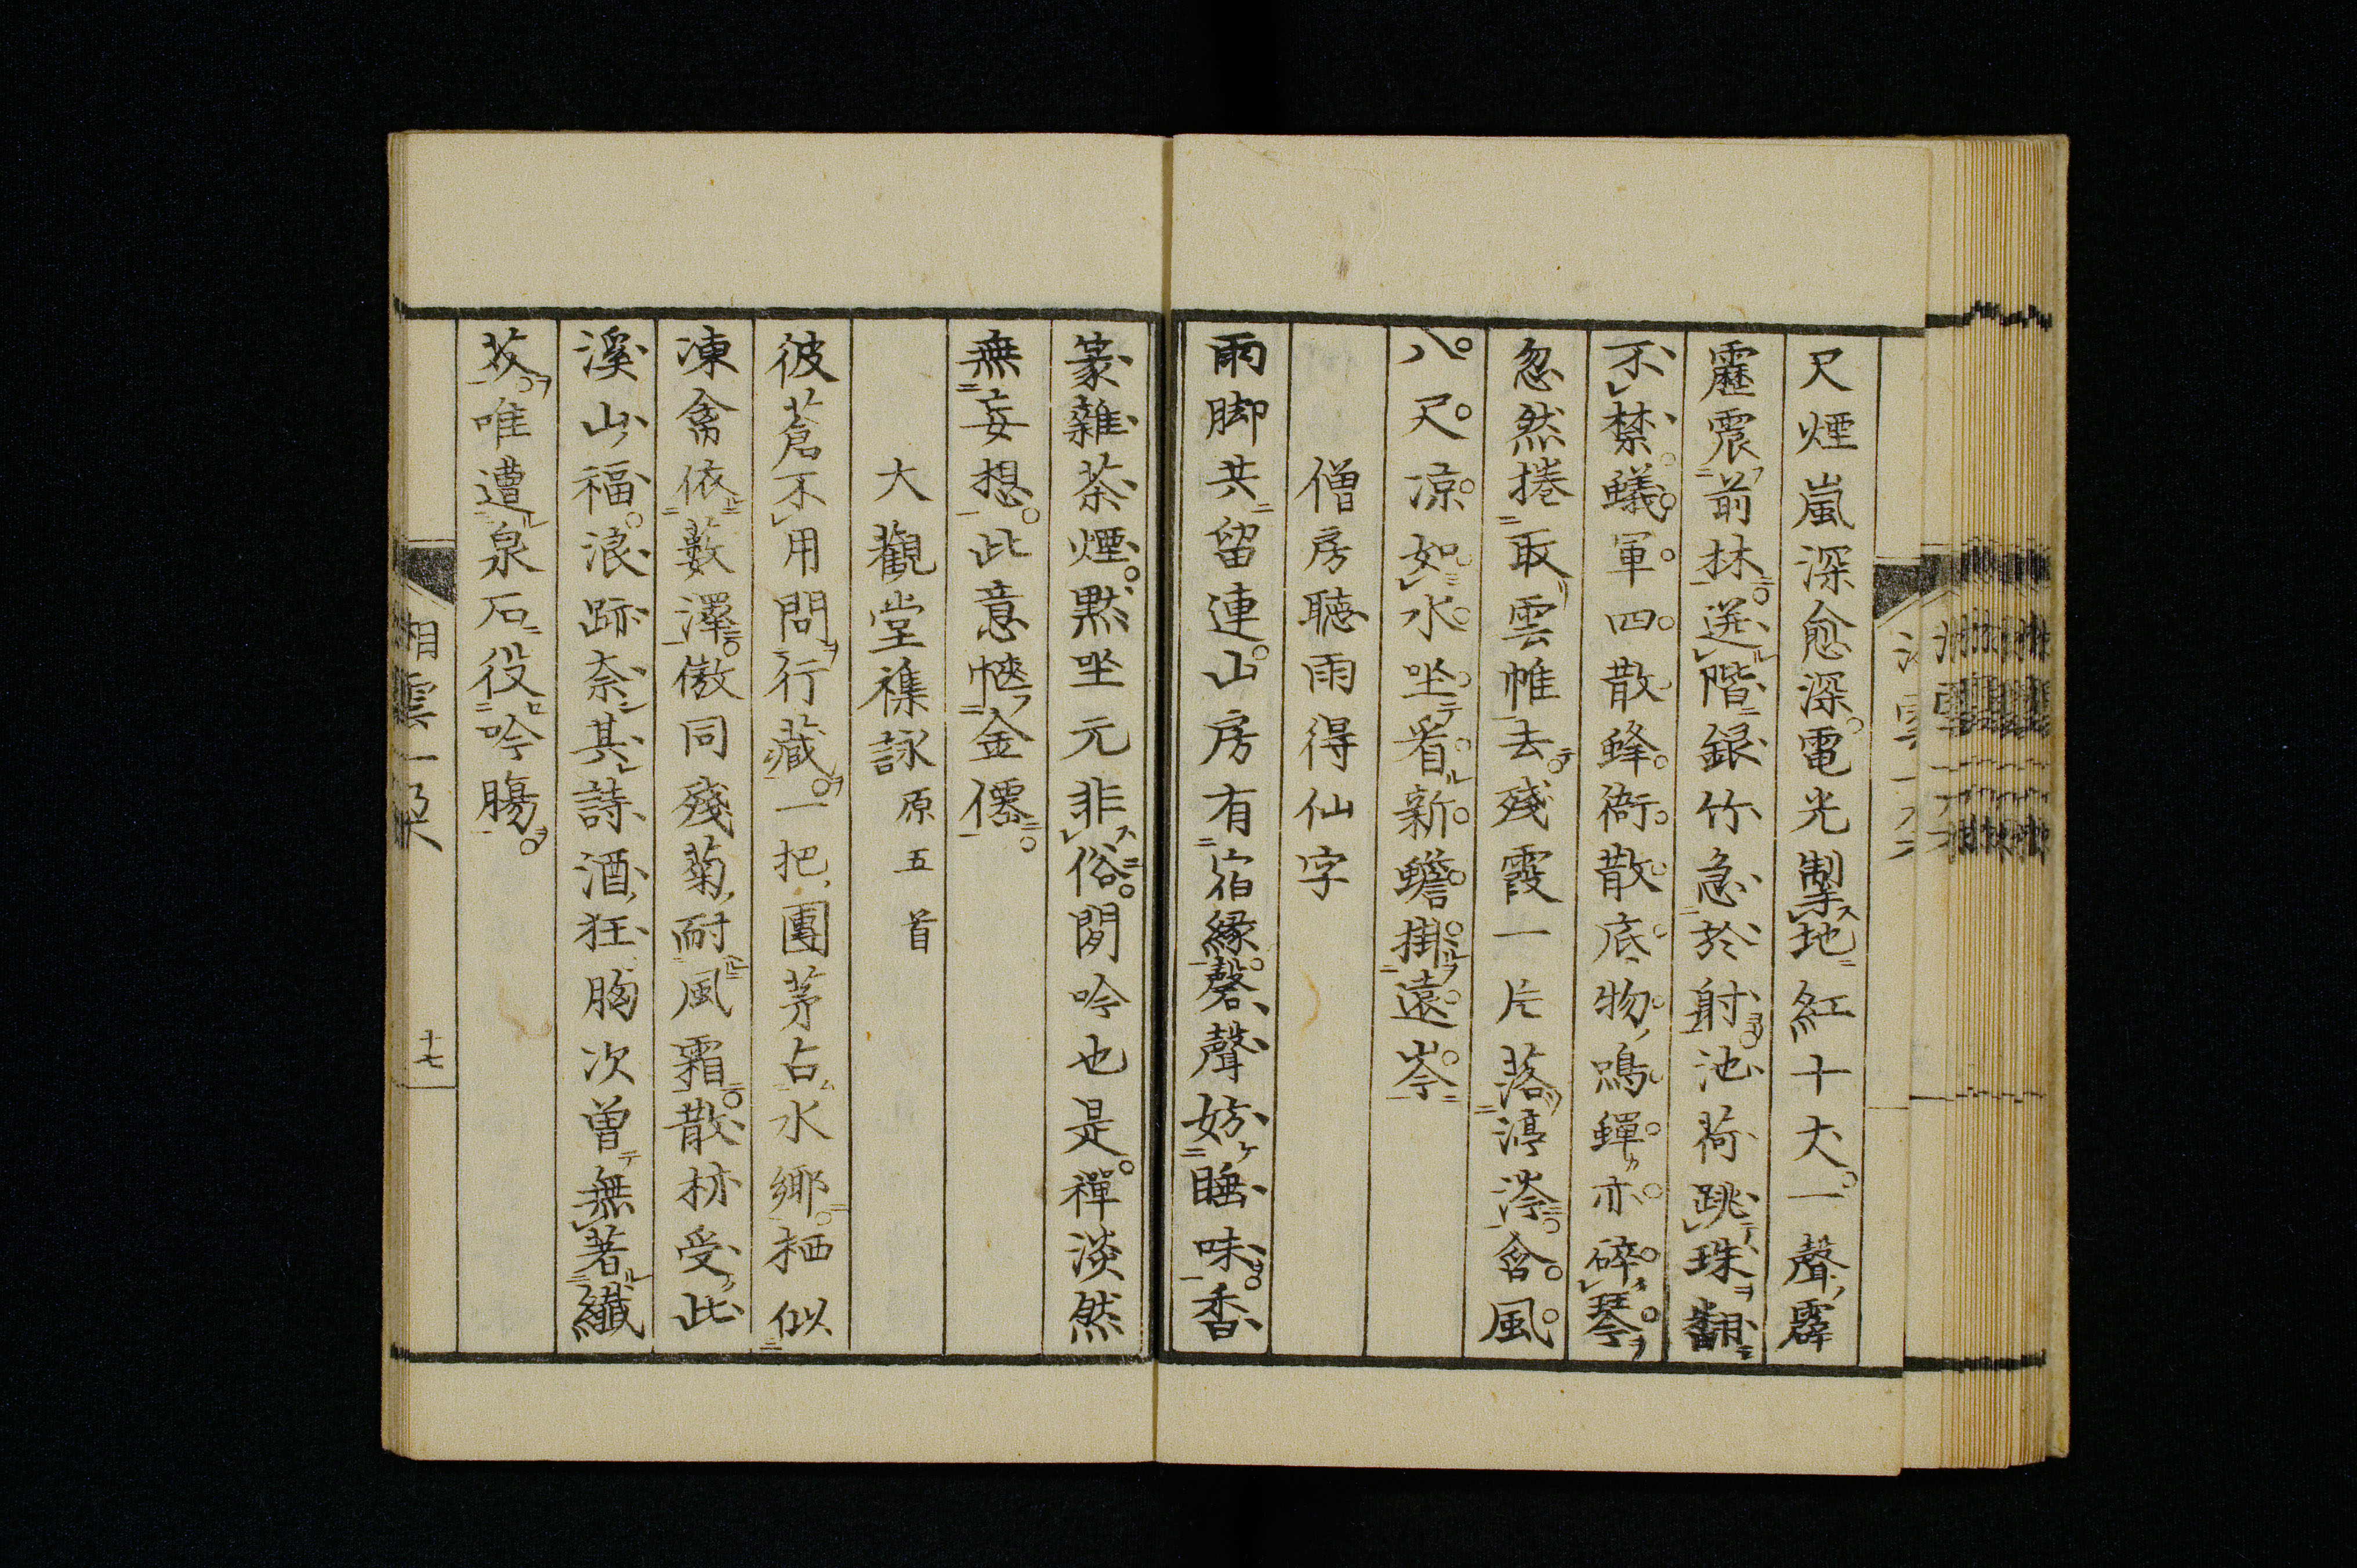 尺煙嵐深愈深電光掣地紅十丈一聲霹
靂震前林迸階銀竹急於射池荷跳珠翻
不禁蟻軍四散蜂衙散底物鳴蟬亦碎琴
忽然捲取雲帷去殘霞一片落渟涔含風
八尺凉如水坐看新蟾掛遠岑
僧房聽雨得仙字
雨脚共留連山房有宿緣磬聲妨睡味香
篆雜茶煙默坐元非俗閒吟也是禪淡然
無妄想此意愧金僊
大觀堂襍詠原五首
彼蒼不用問行藏一把團茅占水鄉栖似
凍禽依藪澤傲同殘菊耐風霜散材受此
溪山福浪跡奈其詩酒狂胸次曾無著纖
芥唯遭泉石役吟腸
湘雲一
十七